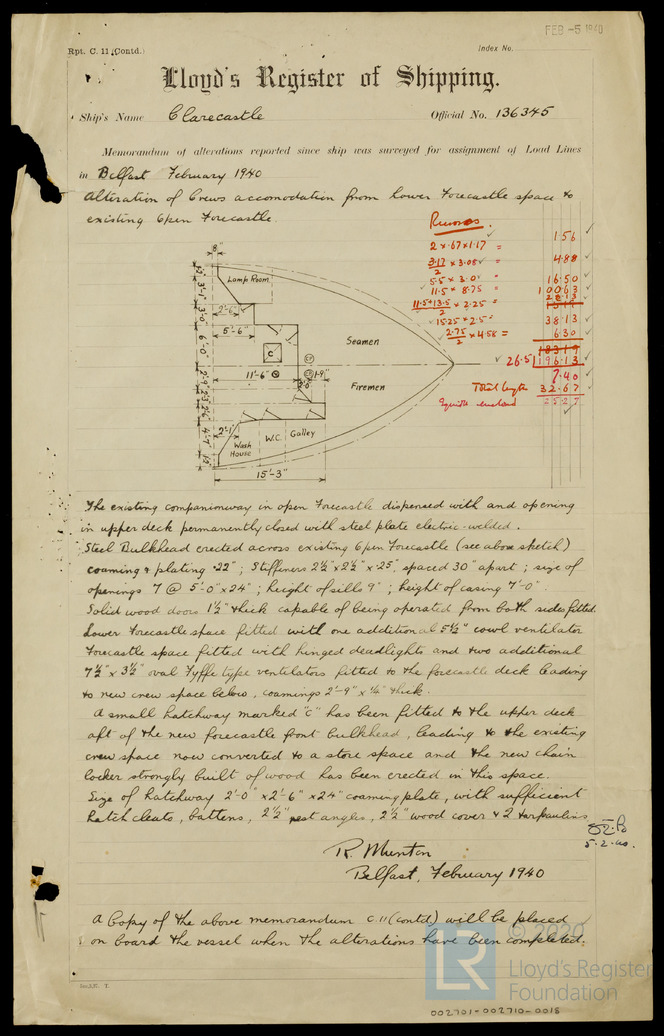 FEB -5 1940
Rpt. C. 11 (Contd.)
Index No.
Lloyd's Register of Shipping.
Ship's Name Clarecastle Official No. 136345
Memorandum of alterations reported since ship was surveyed for assignment of Load Lines
in Belfast February 1940
Alteration of Crews accomodation from Lower Forecastle space to
existing Open Forecastle.
2 x .67 x 1.17 = 1.56
3.17/2 x 3.08 = 4.88
5.5 x 3.0 = 16.50
11.5 x 8.75 = 100.63
11.5+13.5/2 x 2.25 = 28.13
15.25 x 2.5 = 38.13
2.75/2 x 4.58 = 6.30
26.5 196.13
7.40
Total length 32.67
25.27
8"
Lamp Room
2'-6"
5'-6"
C
Seamen
11'-6"
1'-9"
Firemen
2'-1"
Wash House
W.C.
Galley
15'-3"
3'-1"
3'-0"
6'-0"
2'-9"
2'-3"
2'-6"
4'-7"
The existing companionway in open Forecastle dispensed with and opening
in upper deck permanently closed with steel plate electric-welded.
Steel Bulkhead erected across existing Open Forecastle (see above sketch)
coaming & plating .22"; Stiffeners 2½" x 2½" x .25" spaced 30" apart; size of
openings 7 @ 5'-0" x 24"; height of sills 9"; height of casing 7'-0".
Solid wood doors 1½" thick capable of being operated from both sides fitted.
Lower Forecastle space fitted with one additional 5½" cowl ventilator
Forecastle space fitted with hinged deadlights and two additional
7½" x 3½" oval Fyffe type ventilators fitted to the forecastle deck leading
to new crew space below, coamings 2'-9" x ¼" thick.
A small hatchway marked "C" has been fitted to the upper deck
aft of the new forecastle front bulkhead, leading to the existing
crew space now converted to a store space and the new chain
locker strongly built of wood has been erected in this space.
Size of hatchway 2'-0" x 2'-6" x 24" coaming plate, with sufficient
hatch cleats, battens, 2½" rest angles, 2½" wood cover & 2 tarpaulins
5.2.40.
R. Munton
Belfast, February 1940
A Copy of the above memorandum C.11 (contd.) will be placed
on board the vessel when the alterations have been completed.
LR
© 2020
Lloyd's Register
Foundation
002701-002710-0018